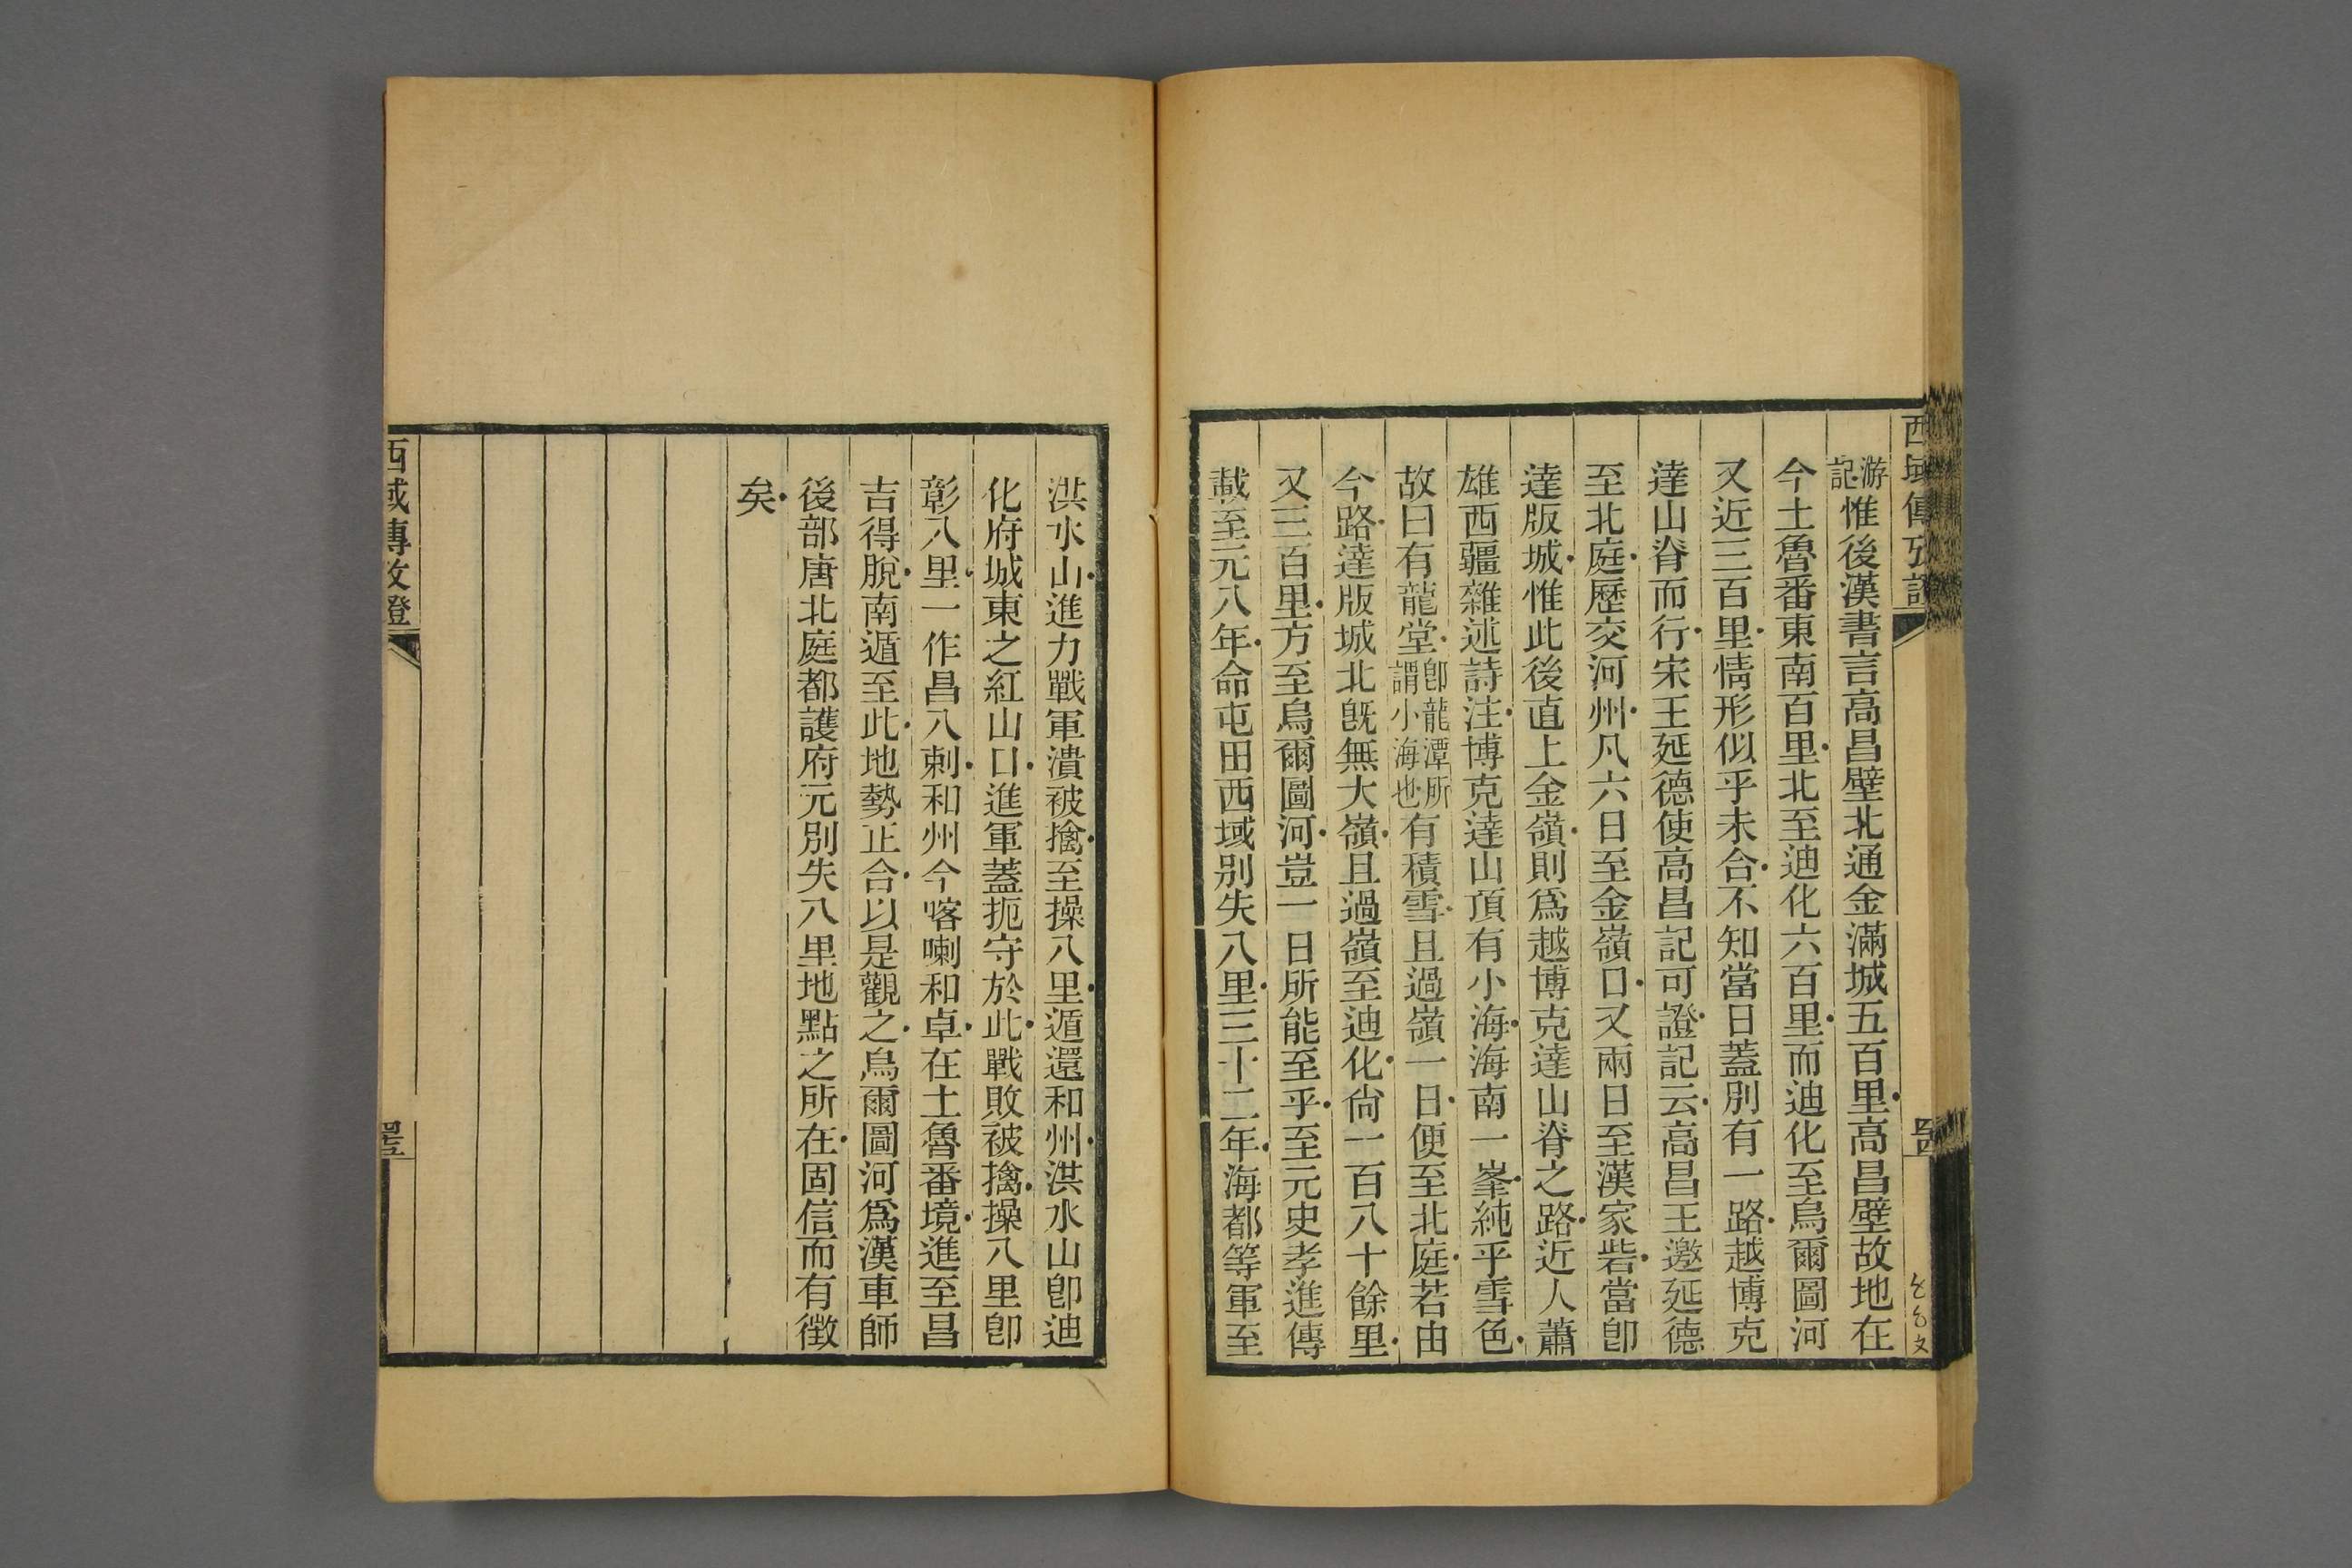 西域傳攷證
游記惟後漢書言高昌壁北通金滿城五百里高昌壁故地在
今土魯番東南百里北至迪化六百里而迪化至烏爾圖河
又近三百里情形似乎未合不知當日蓋別有一路越博克
達山脊而行宋王延德使高昌記可證記云高昌王邀延德
至北庭歷交河州凡六日至金嶺口又兩日至漢家砦當卽
達版城惟此後直上金嶺則爲越博克達山脊之路近人蕭
雄西疆雜述詩注博克達山頂有小海海南一峯純乎雪色
故曰有龍堂卽龍潭所謂小海也有積雪且過嶺一日便至北庭若由
今路達版城北旣無大嶺且過嶺至迪化尙一百八十餘里
又三百里方至烏爾圖河豈一日所能至乎至元史孝進傳
載至元八年命屯田西域別失八里三十二年海都等軍至
洪水山進力戰軍潰被擒至操八里遁還和州洪水山卽迪
化府城東之紅山口進軍蓋扼守於此戰敗被擒操八里卽
彰八里一作昌八剌和州今喀喇和卓在土魯番境進至昌
吉得脫南遁至此地勢正合以是觀之烏爾圖河爲漢車師
後部唐北庭都護府元別失八里地點之所在固信而有徵
矣
西域傳攷證